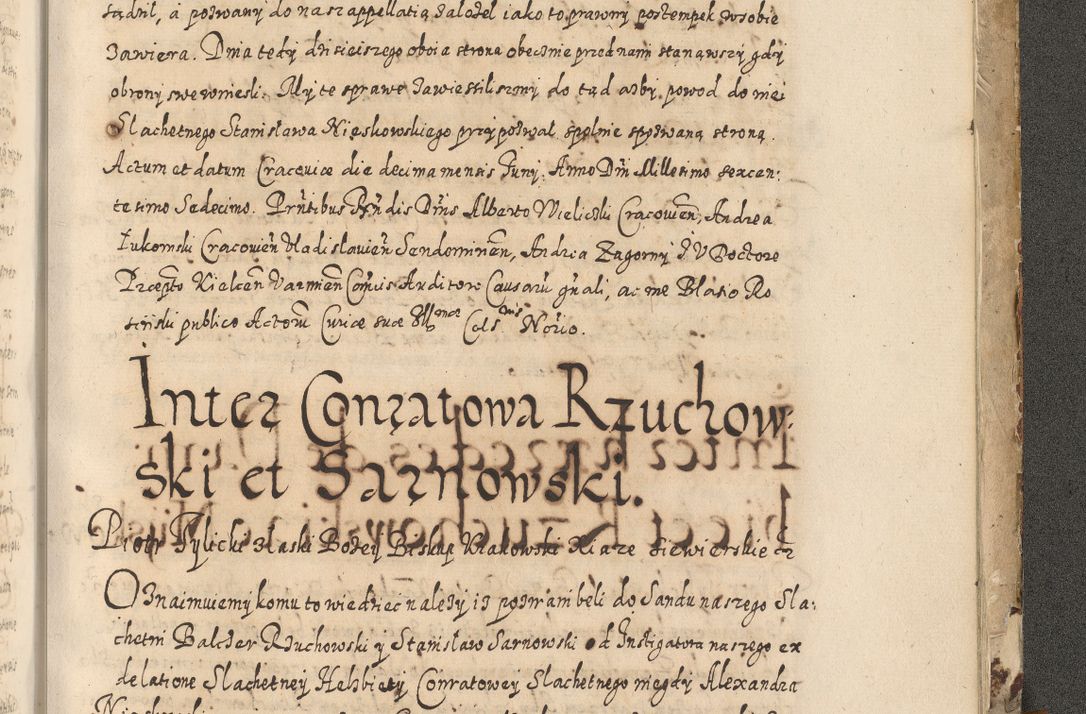 sądził, a pozwany do nas zappellatią założeł iako to prawny postempek w sobie
zawiera. Dnia tedy dzisieiszego oboia strona obecznie przed nami stanąwszy gdy
obrony swe wniesli. My te sprawe zawiesiliszmy do tąd asby powod do niei
Slachetnego Stanisława Nieskowskiego przypozwał spolnie spozwaną stroną.
Actum et datum Cracoviæ die decima mensis Junÿ. Anno Dñi Millesimo sexcen:
tesimo Sedecimo. Prñtibus Rñdis Dñis Alberto Wieliczki Cracovieñ, Andrea
Łukomski Cracovieñ Vladislavieñ Sendomirieñ, Andrea Zagorny J V Doctore
Præpto Kielceñ Varmieñ Cañcis Auditore Causarũ gñali, ac me Blasio Ro
sinski publico Actorũ Curiæ suæ Celsnis Norio.
Inter Conratowa Rzuchow:
ski et Sarnowski.
Piotr Tylicki złaski Bożey Biskup Krakowski Xiąże Siewierskie etz
Oznaimuiemy komu to wiedzieć należy iż pozwani beli do Sandu naszego Sla:
chetni Balczer Rzuchowski y Stanisław Sarnowski od Instigatora naszego ex
delatione Slachetney Helzbiety Conratowey Slachetnego niegdy Alexandra